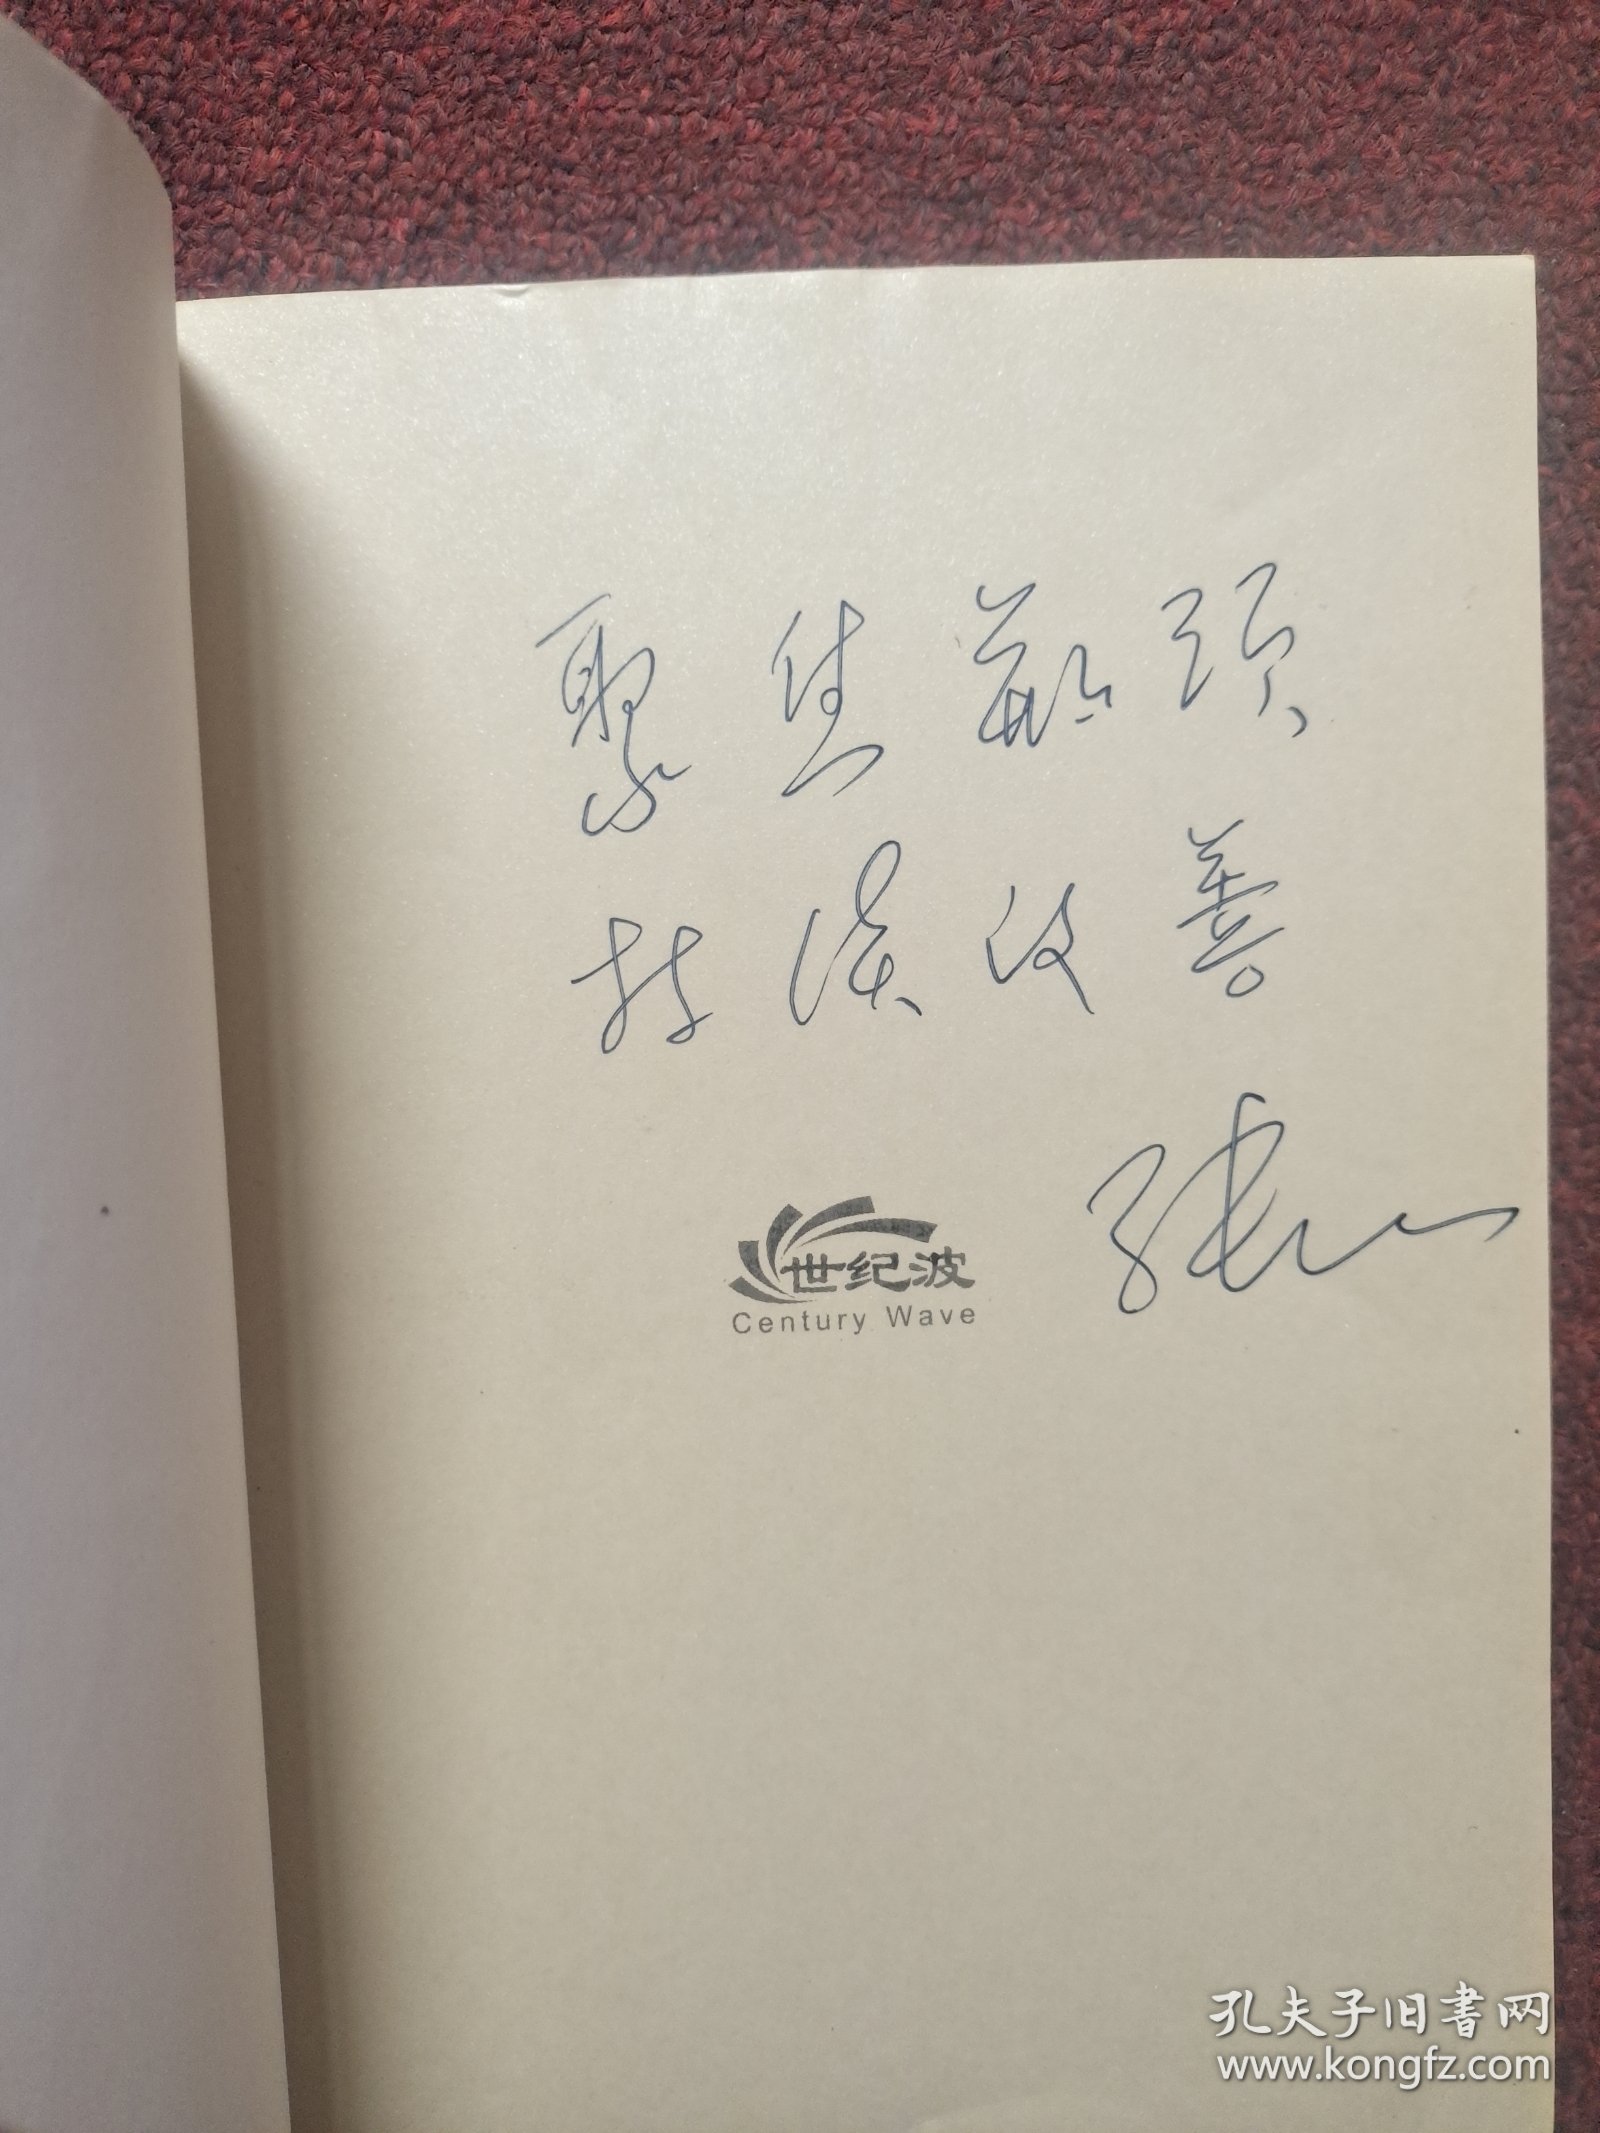 聚焦瓶颈
持续改善
张
世纪波
Century Wave
孔夫子旧书网
www.kongfz.com